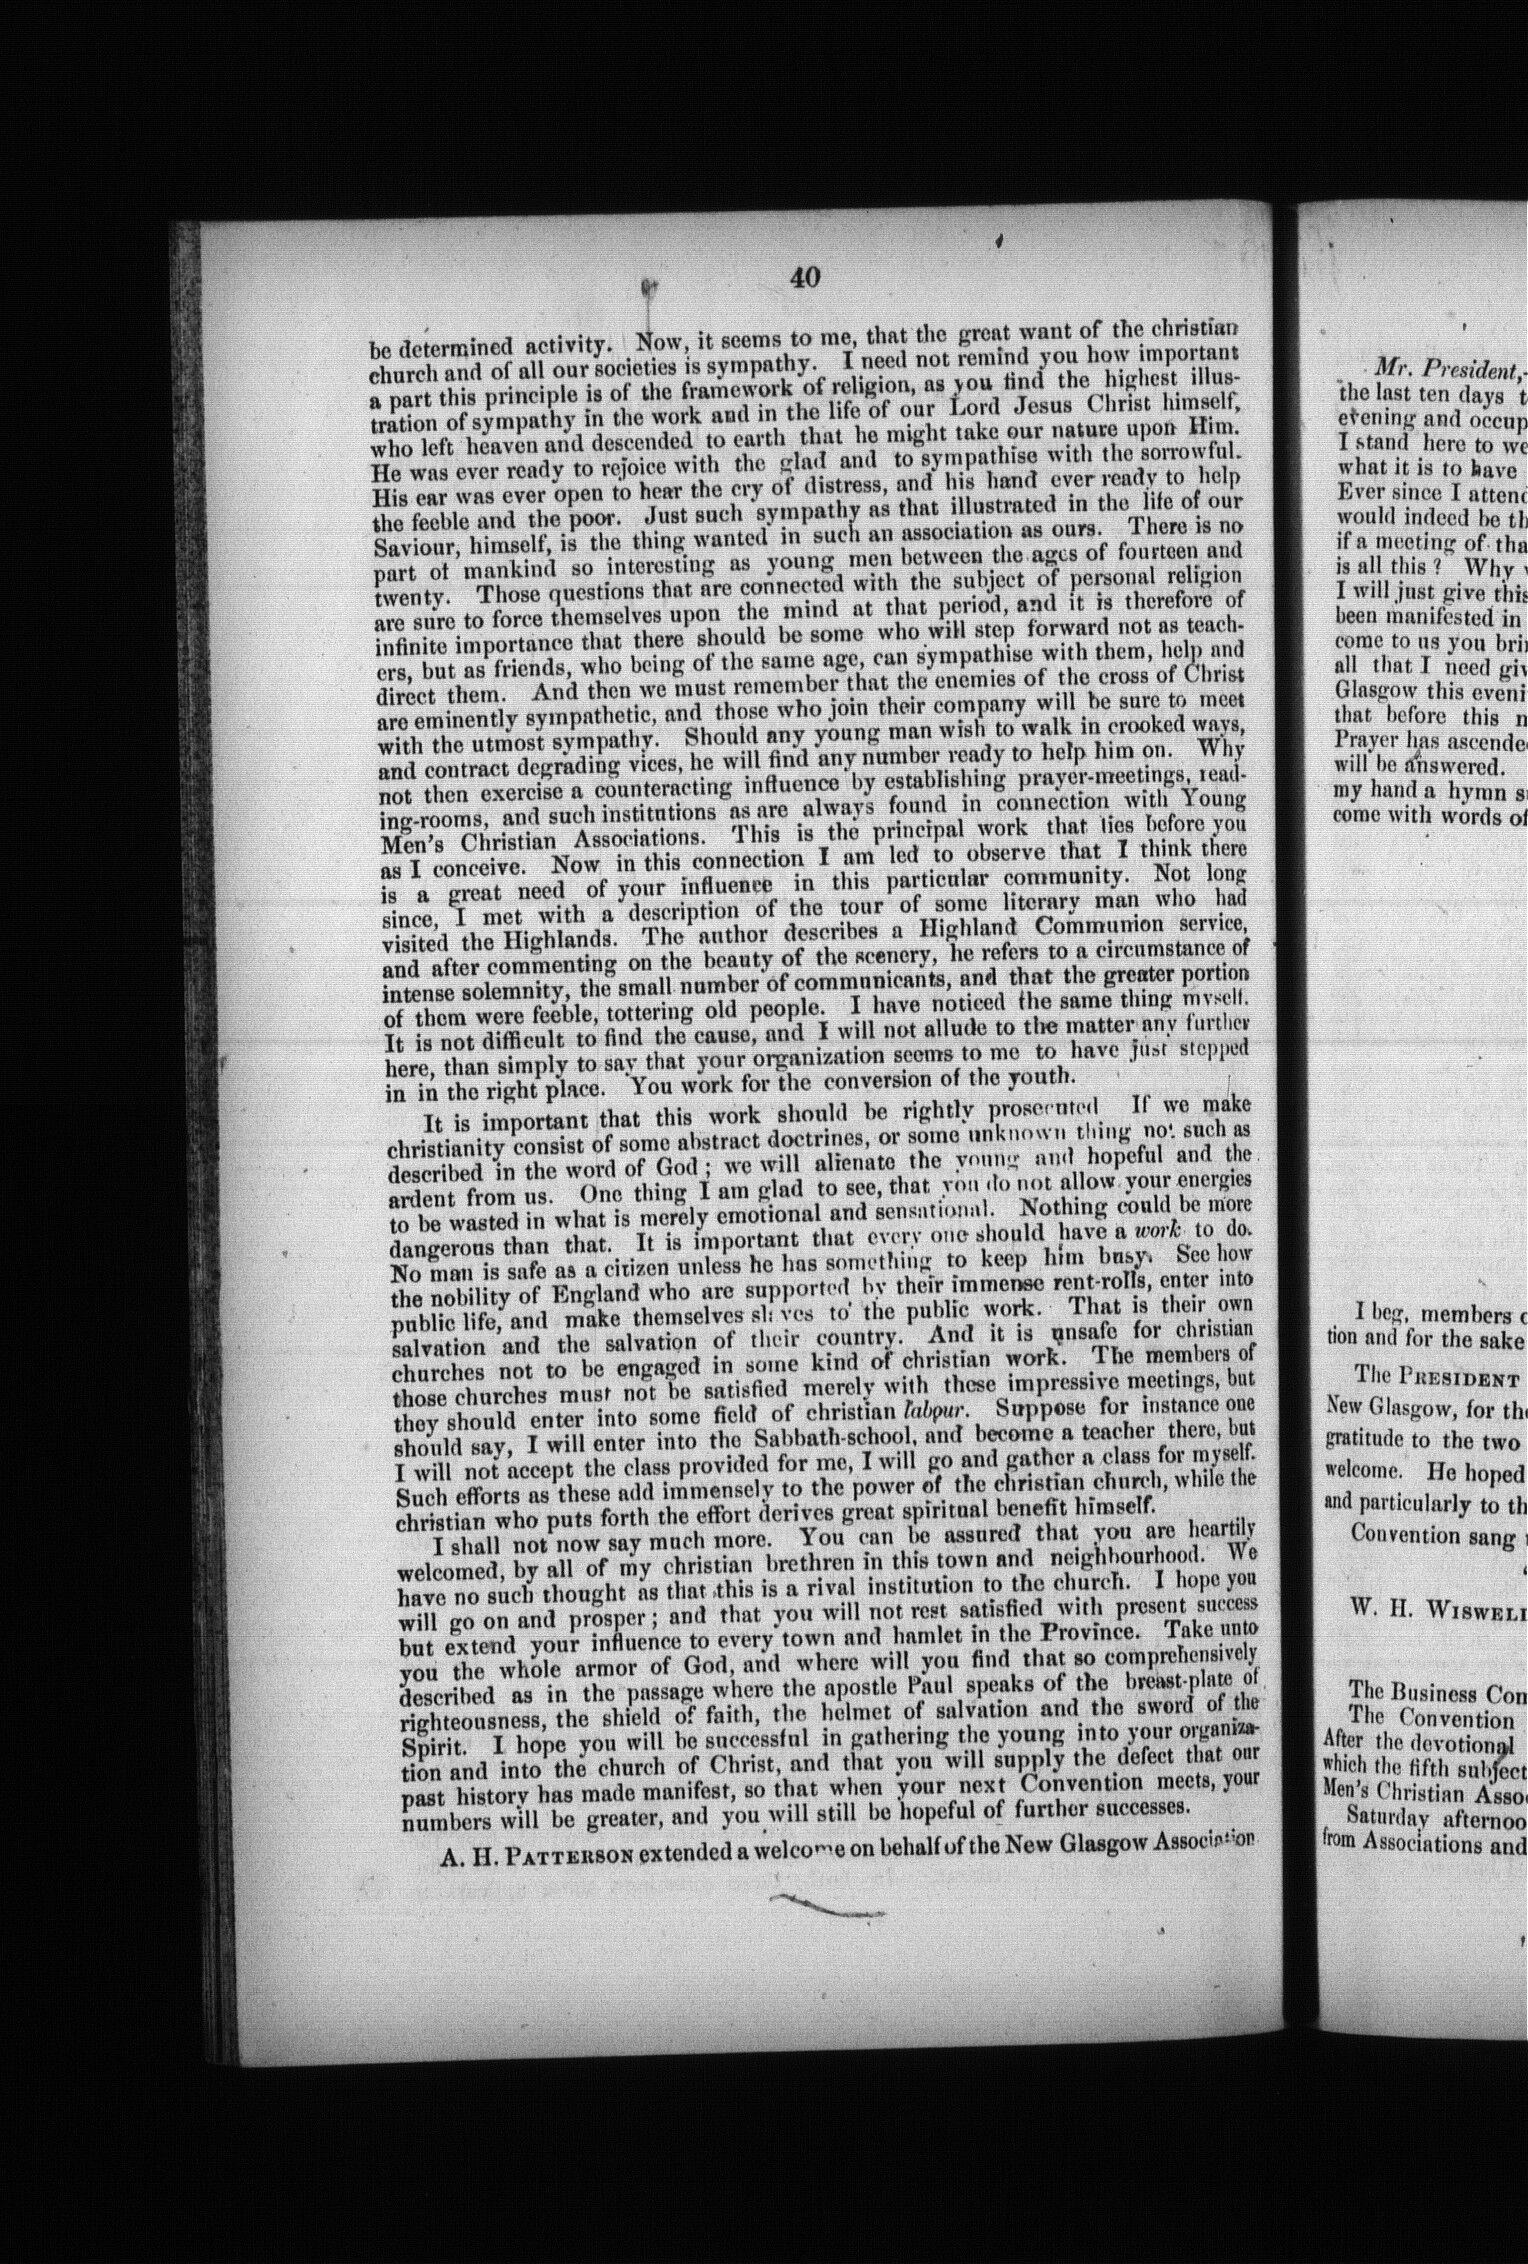 40
be determined activity. Now, it seems to me, that the great want of the christian
church and of all our societies is sympathy. I need not remind you how important
a part this principle is of the framework of religion, as you find the highest illus-
tration of sympathy in the work and in the life of our Lord Jesus Christ himself,
who left heaven and descended to earth that he might take our nature upon Him.
He was ever ready to rejoice with the glad and to sympathise with the sorrowful.
His ear was ever open to hear the cry of distress, and his hand ever ready to help
the feeble and the poor. Just such sympathy as that illustrated in the life of our
Saviour, himself, is the thing wanted in such an association as ours. There is no
part of mankind so interesting as young men between the ages of fourteen and
twenty. Those questions that are connected with the subject of personal religion
are sure to force themselves upon the mind at that period, and it is therefore of
infinite importance that there should be some who will step forward not as teach-
ers, but as friends, who being of the same age, can sympathise with them, help and
direct them. And then we must remember that the enemies of the cross of Christ
are eminently sympathetic, and those who join their company will be sure to meet
with the utmost sympathy. Should any young man wish to walk in crooked ways,
and contract degrading vices, he will find any number ready to help him on. Why
not then exercise a counteracting influence by establishing prayer-meetings, read-
ing-rooms, and such institutions as are always found in connection with Young
Men's Christian Associations. This is the principal work that lies before you
as I conceive. Now in this connection I am led to observe that I think there
is a great need of your influence in this particular community. Not long
since, I met with a description of the tour of some literary man who had
visited the Highlands. The author describes a Highland Communion service,
and after commenting on the beauty of the scenery, he refers to a circumstance of
intense solemnity, the small number of communicants, and that the greater portion
of them were feeble, tottering old people. I have noticed the same thing myself.
It is not difficult to find the cause, and I will not allude to the matter any further
here, than simply to say that your organization seems to me to have just stepped
in in the right place. You work for the conversion of the youth.
It is important that this work should be rightly prosecuted If we make
christianity consist of some abstract doctrines, or some unknown thing not such as
described in the word of God; we will alienate the young and hopeful and the
ardent from us. One thing I am glad to see, that you do not allow your energies
to be wasted in what is merely emotional and sensational. Nothing could be more
dangerous than that. It is important that every one should have a work to do.
No man is safe as a citizen unless he has something to keep him busy. See how
the nobility of England who are supported by their immense rent-rolls, enter into
public life, and make themselves slaves to the public work. That is their own
salvation and the salvation of their country. And it is unsafe for christian
churches not to be engaged in some kind of christian work. The members of
those churches must not be satisfied merely with these impressive meetings, but
they should enter into some field of christian labour. Suppose for instance one
should say, I will enter into the Sabbath-school, and become a teacher there, but
I will not accept the class provided for me, I will go and gather a class for myself.
Such efforts as these add immensely to the power of the christian church, while the
christian who puts forth the effort derives great spiritual benefit himself.
I shall not now say much more. You can be assured that you are heartily
welcomed, by all of my christian brethren in this town and neighbourhood. We
have no such thought as that this is a rival institution to the church. I hope you
will go on and prosper; and that you will not rest satisfied with present success
but extend your influence to every town and hamlet in the Province. Take unto
you the whole armor of God, and where will you find that so comprehensively
described as in the passage where the apostle Paul speaks of the breast-plate of
righteousness, the shield of faith, the helmet of salvation and the sword of the
Spirit. I hope you will be successful in gathering the young into your organiza-
tion and into the church of Christ, and that you will supply the defect that our
past history has made manifest, so that when your next Convention meets, your
numbers will be greater, and you will still be hopeful of further successes.
A. H. PATTERSON extended a welcome on behalf of the New Glasgow Association
Mr. President,-
the last ten days
evening and occup
I stand here to we
what it is to have
Ever since I attend
would indeed be th
if a meeting of tha
is all this? Why
I will just give this
been manifested in
come to us you brin
all that I need giv
Glasgow this eveni
that before this
Prayer has ascende
will be answered.
my hand a hymn
come with words of
I beg, members
tion and for the sake
The PRESIDENT
New Glasgow, for the
gratitude to the two
welcome. He hoped
and particularly to th
Convention sang
W. H. WISWELL
The Business Com
The Convention
After the devotional
which the fifth subject
Men's Christian Asso
Saturday afternoo
from Associations and